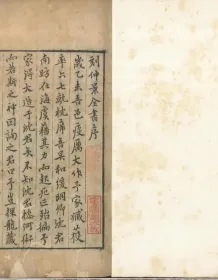 刻仲景全書序
歲乙未吾邑疫厲大作予家臧獲
率六七就枕席吾吳和緩明卿沈君
南昉在海虞藉其力而起死亡殆徧予
家得大造于沈君矣不知沈君操何術
而若斯之神因詢之君曰予豈探龍藏